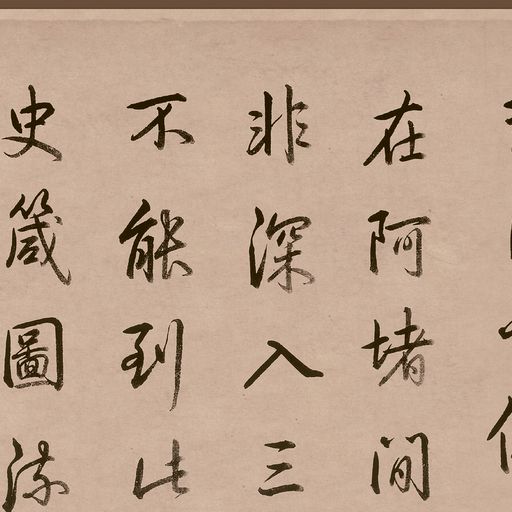 在阿堵間
非深入三
不能到此
史箴圖流